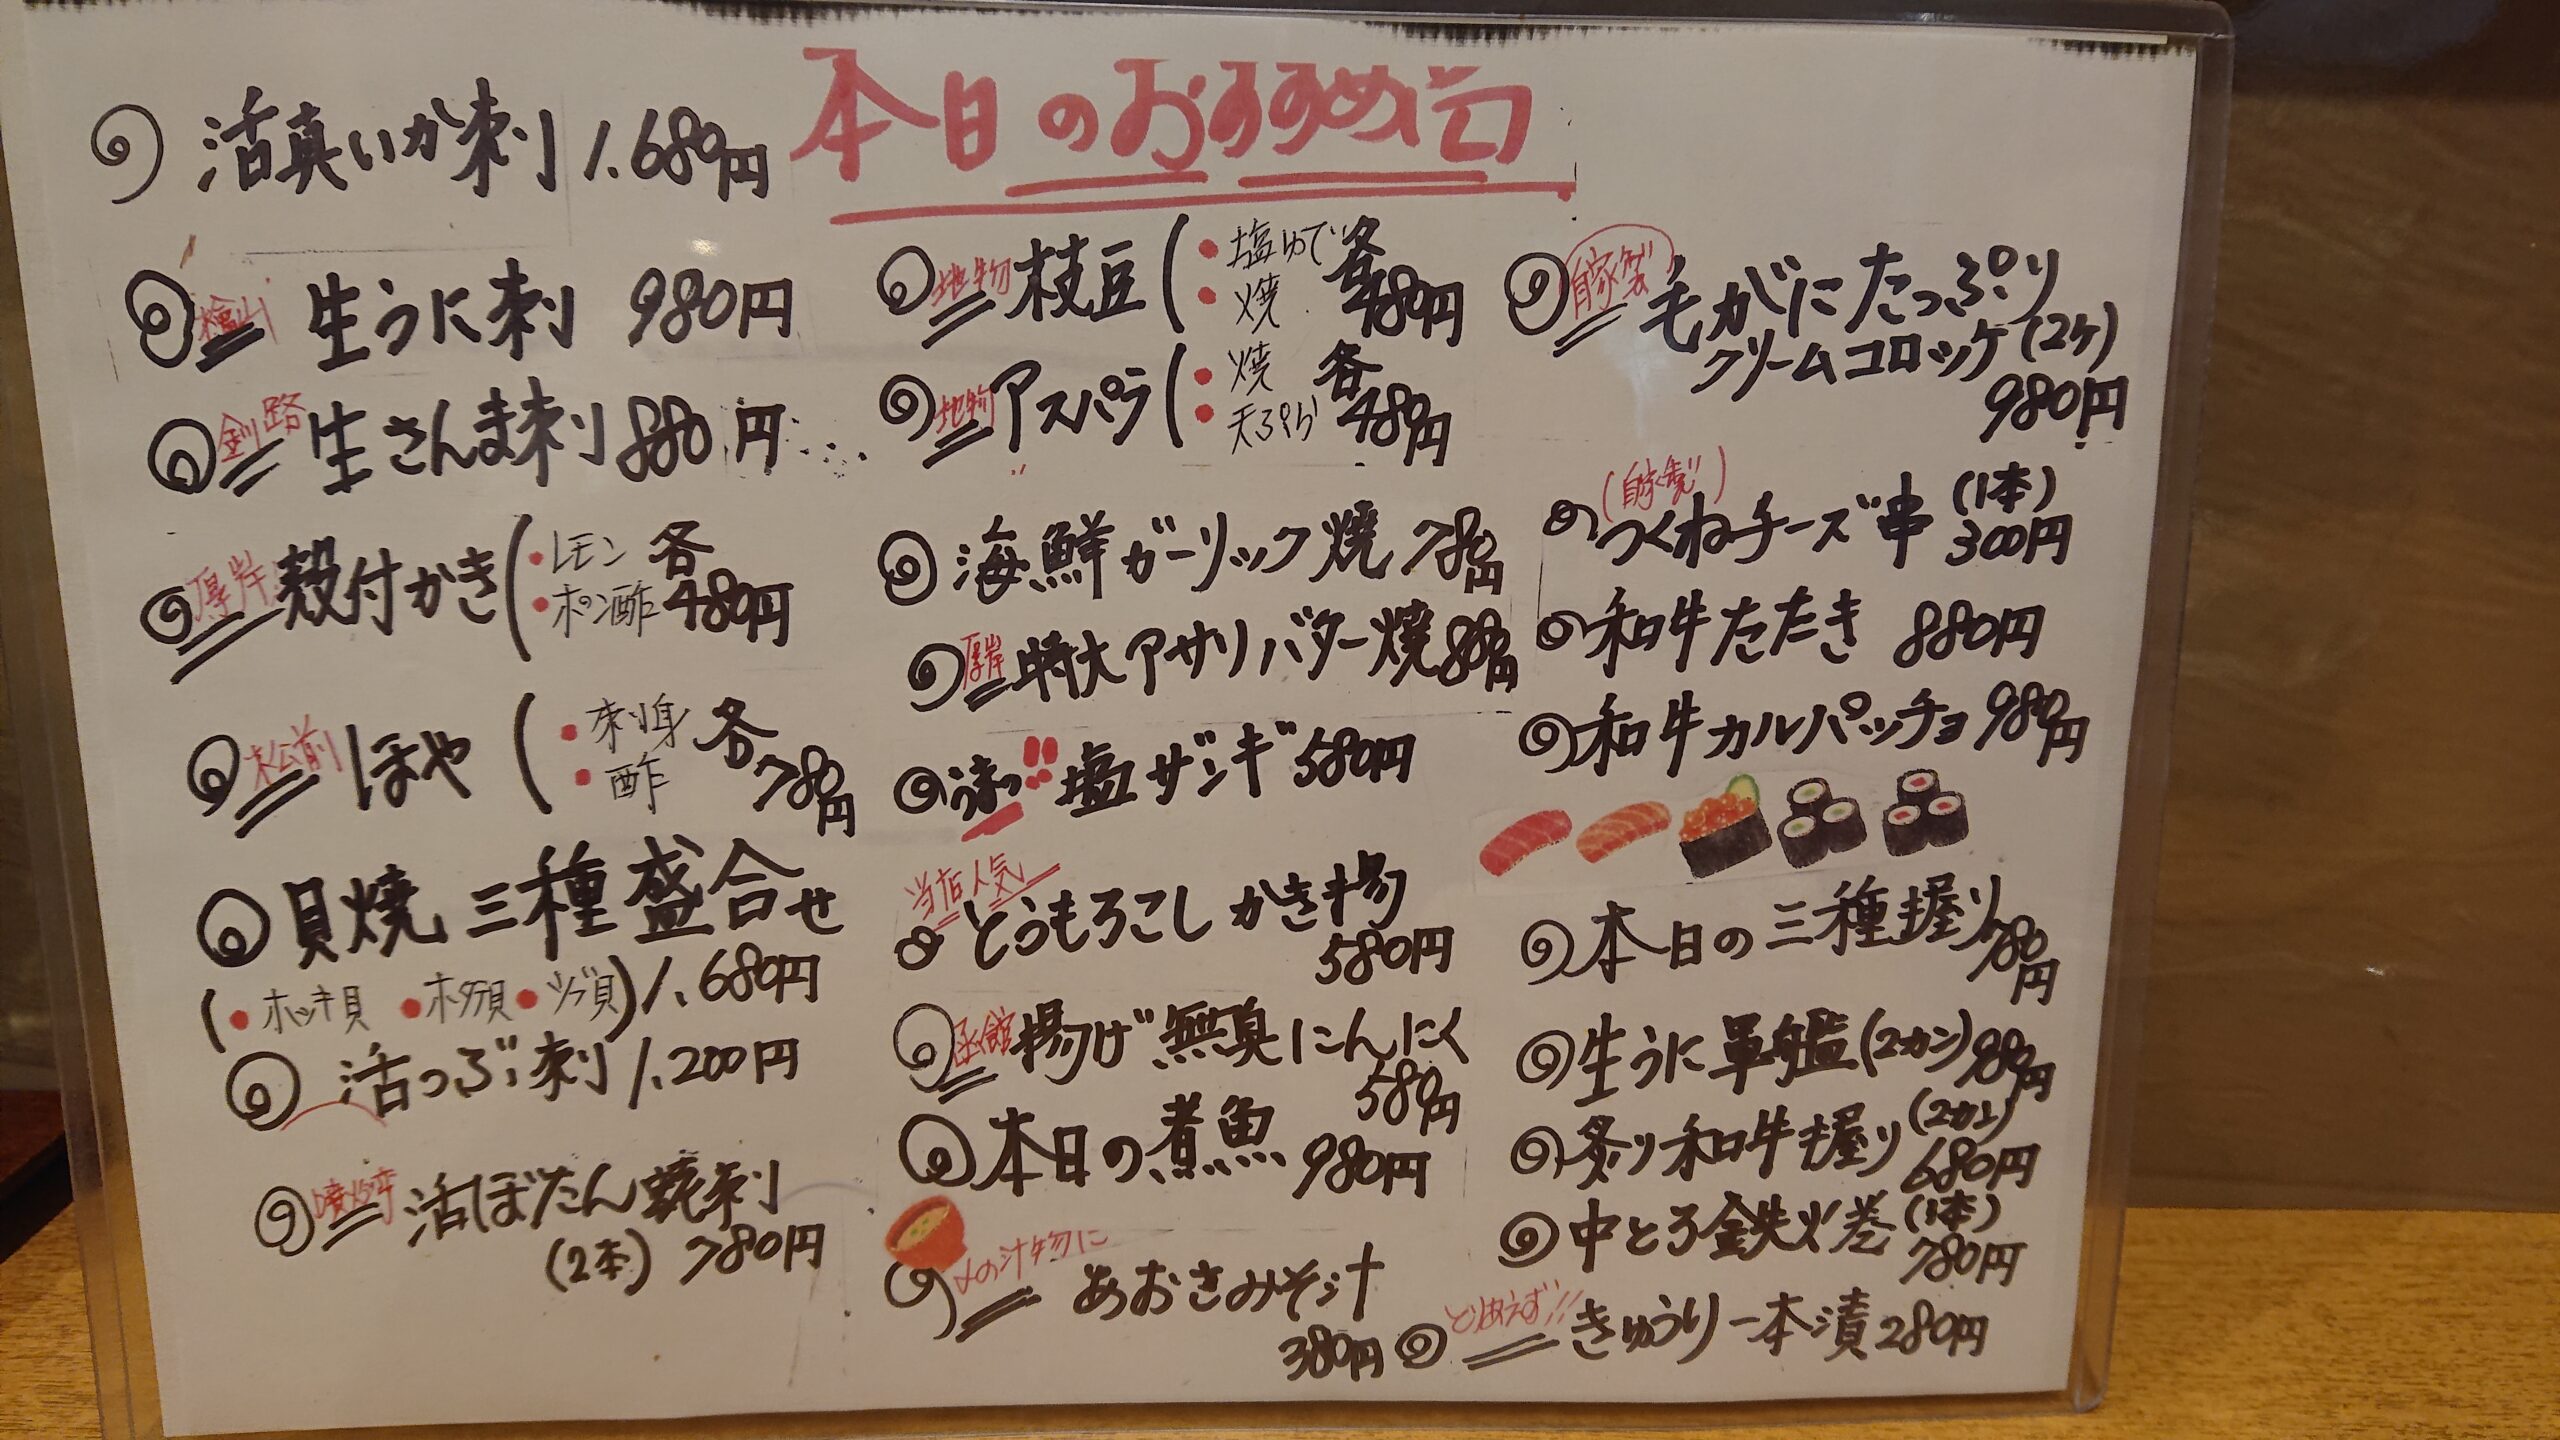 本日のおすすめ
活真いか刺 1.680円
檜山 生うに刺 980円
釧路 生さんま刺 880円
厚岸 殻付かき ・レモン ・ポン酢 各480円
松前 ほや ・刺身 ・酢 各780円
貝焼三種盛合せ
(・ホッキ貝 ・ホタテ貝 ・ツブ貝) 1.680円
活つぶ刺 1.200円
噴火湾 活ぼたん蝦刺
(2本) 780円
地物 枝豆 ・塩ゆで ・焼 各480円
地物 アスパラ ・焼 ・天ぷら 各480円
海鮮ガーリック焼 780円
厚岸 特大アサリバター焼 880円
うまっ!! 塩ザンギ 580円
当店人気
とうもろこしかき揚
580円
函館 揚げ無臭にんにく
580円
本日の煮魚 980円
〆の汁物に
あおさみそ汁
380円
自家製 毛がにたっぷり
クリームコロッケ(2ケ)
980円
(自家製)
つくねチーズ串 (1本)
300円
和牛たたき 880円
和牛カルパッチョ 980円
本日の三種握り 780円
生うに軍艦(2カン) 980円
炙り和牛握り (2カン)
680円
中とろ鉄火巻 (1本)
780円
とりあえず!! きゅうり一本漬 280円